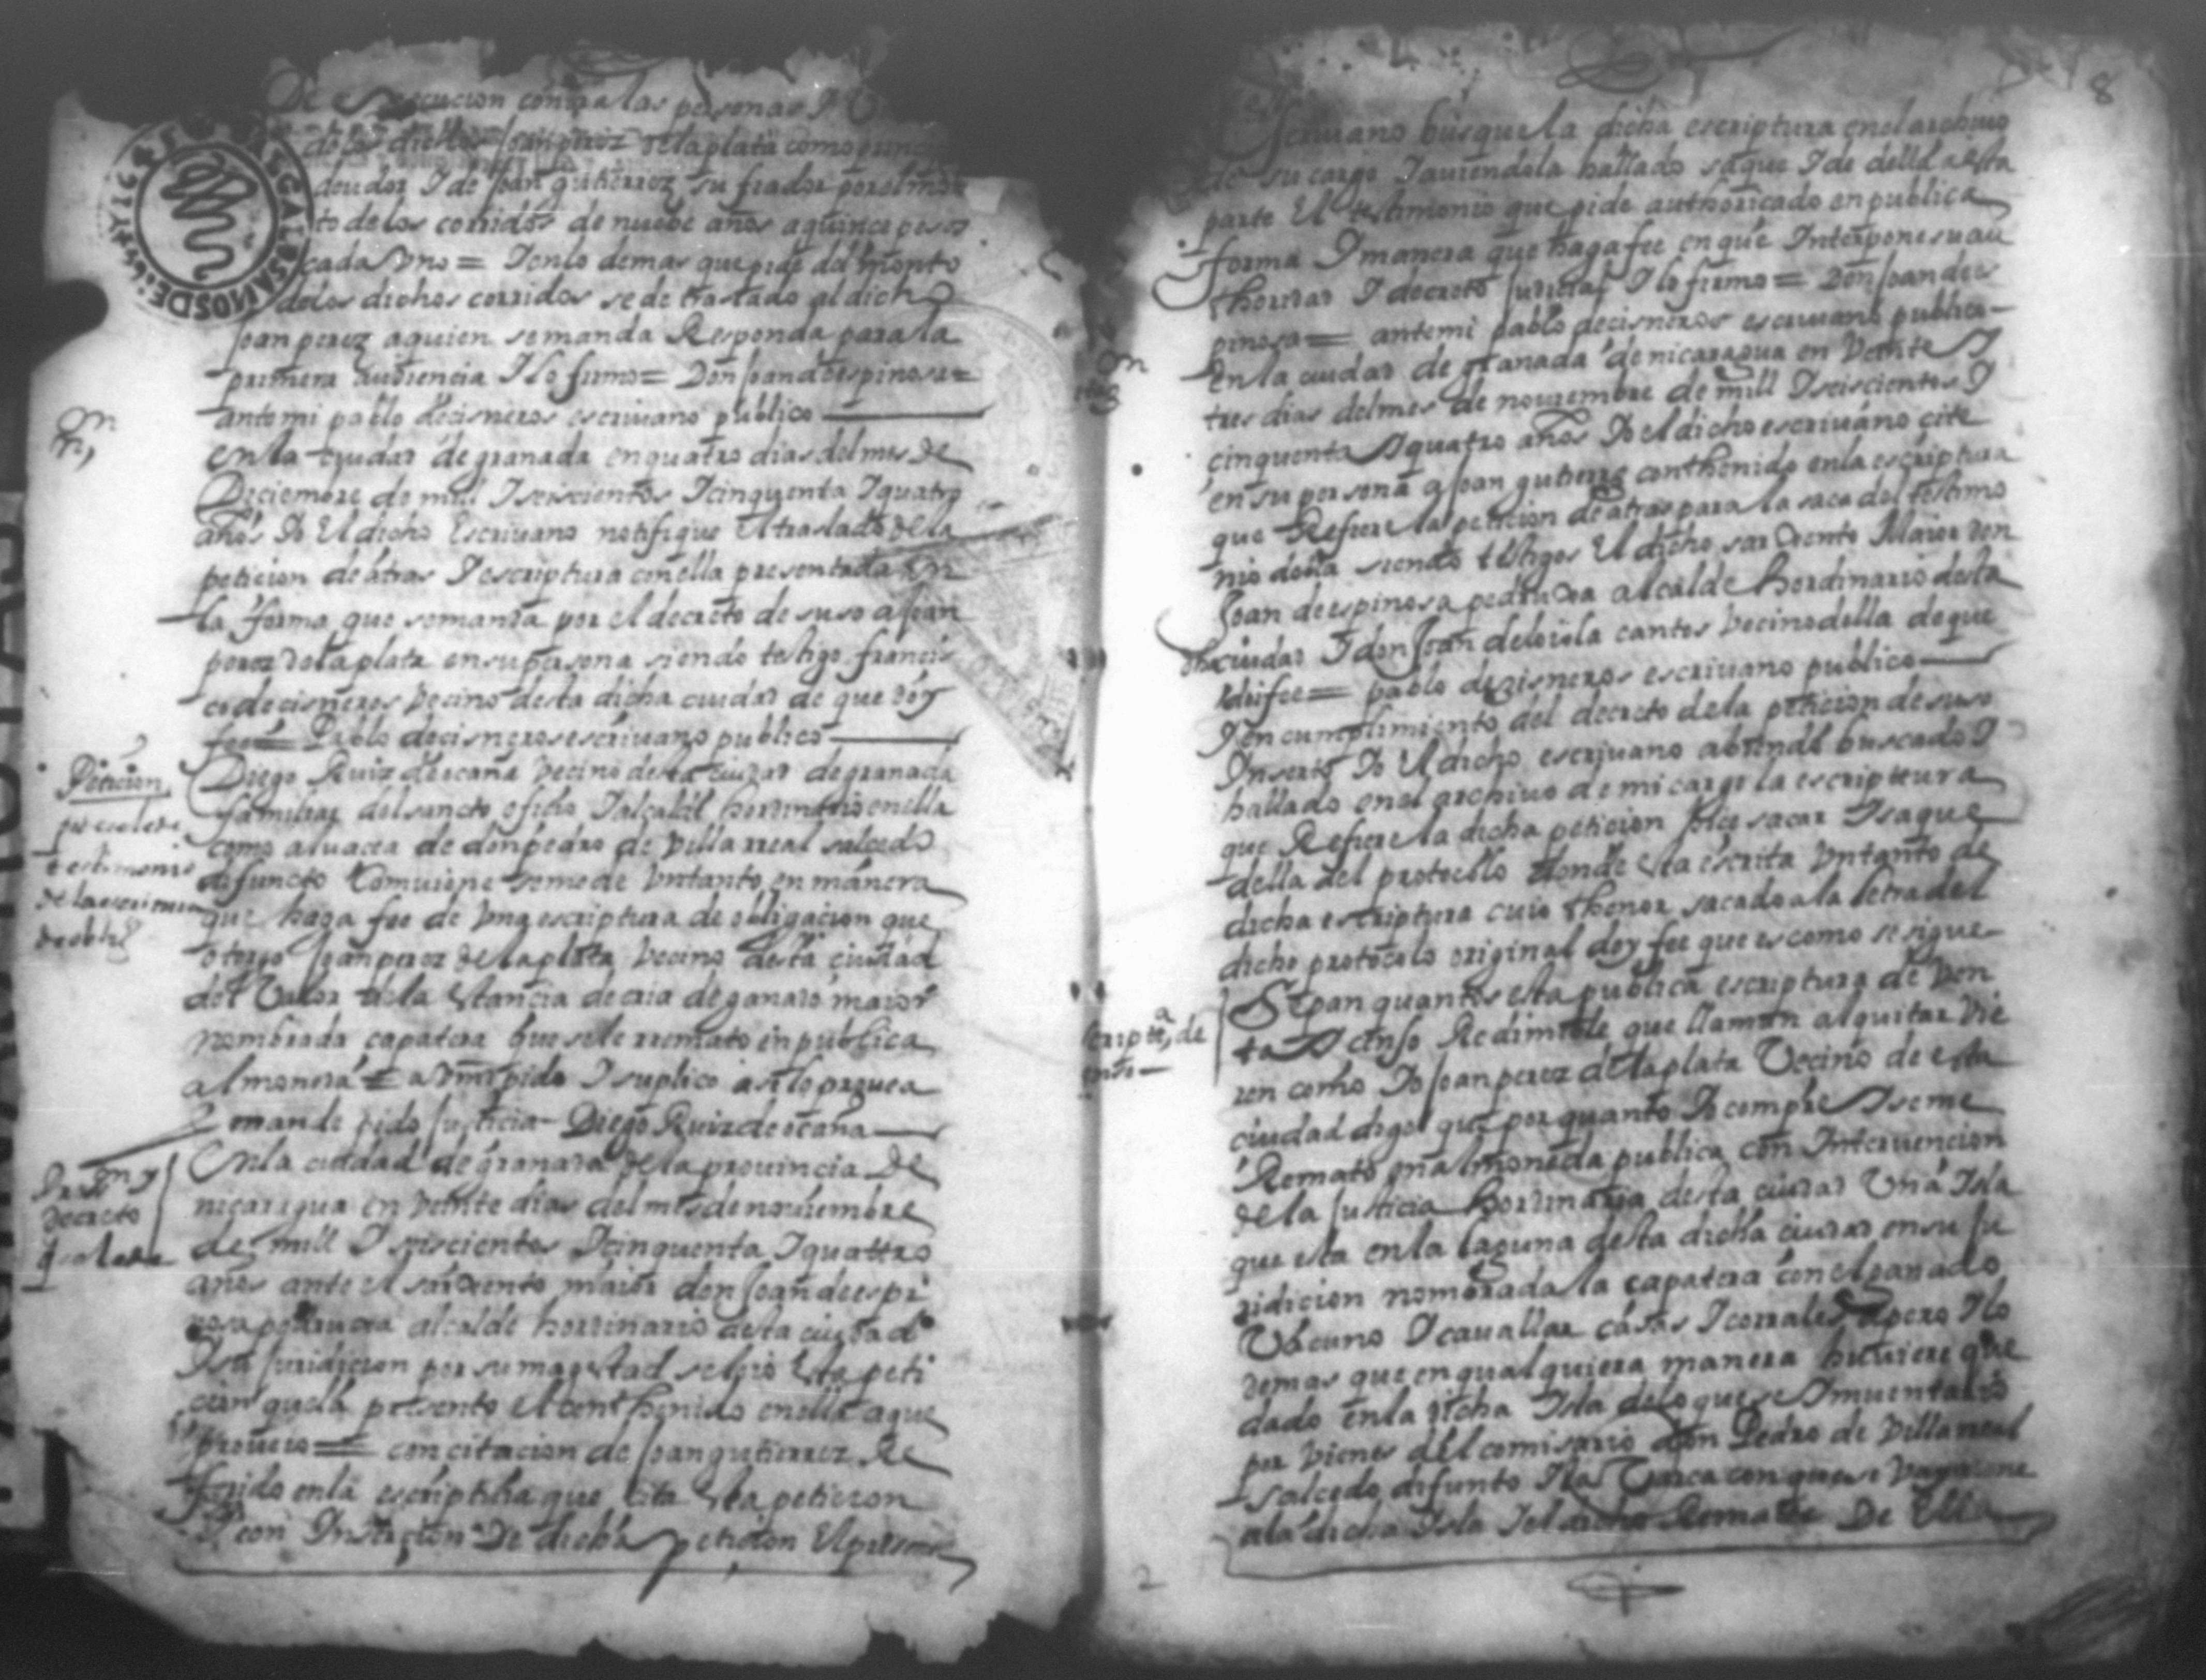 De execucion contra las personas I
de los dichos Joan perez de la plata como princi
deudor I de Joan gutierrez su fiador por el mon
to de los corridos de nuebe años a quince pesos
cada vno = I en lo demas que pide del monto
de los dichos corridos se de traslado al dicho
Joan perez a quien se manda Responda para la
primera audiencia I lo firmo = Don Joan de espinosa =
ante mi pablo de cisneros escriuano publico
en la ciudad de granada en quatro dias del mes de
Deciembre de mill I seiscientos I cinquenta I quatro
años Io El dicho Escriuano notifique el traslado de la
peticion de atras I escriptura con ella presentada en
la forma que se manda por el decreto de suso a Joan
perez de la plata en su persona siendo testigo francis
co de cisneros vecino desta dicha ciudad de que doy
fee = Pablo de cisneros escriuano publico
Peticion
testimonio
Diego Ruiz de ocaña vecino desta ciudad de granada
familiar del sancto oficio I alcalde hordinario en ella
como aluacea de don pedro de villa rreal salcedo
difuncto Comuiene se me de vn tanto en manera
que haga fee de vna escriptura de obligacion que
otorgo Joan perez de la plata vecino desta ciudad
del Valor de la estancia de cria de ganado maior
nombrada capatera que se le rremato en publica
almoneda = a Vmd pido I suplico asi lo prouea
I mande pido Justicia Diego Ruiz de ocaña
decreto
En la ciudad de granada de la prouincia de
nicaragua en veinte dias del mes de nouiembre
de mill I seiscientos I cinquenta I quattro
años ante el sarxento maior don Joan de espi
nosa pedruxa alcalde hordinario desta ciudad
I su Juridicion por su magestad se leio esta peti
cion que la presento el conthenido en ella a que
proueio = con citacion de Joan gutierrez Re
ferido en la escriptura que cita esta peticion
I con Insercion De dicha peticion El presente
8
Escriuano busque la dicha escriptura en el archiuo
de su cargo I auiendola hallado saque I de della a esta
parte El testimonio que pide authoricado en publica
forma I manera que haga fee en que Interpone su au
thoridad I decreto Judicial I lo firmo = Don Joan de es
pinosa = ante mi pablo de cisneros escriuano publico
En la ciudad de granada de nicaragua en veinte I
tres dias del mes de nouiembre de mill I seiscientos I
cinquenta I quatro años Io el dicho escriuano cite
en su persona a Joan gutierrez conthenido en la escriptura
que Refiere la peticion de atras para la saca del testimo
nio della siendo testigos El dicho sarxento Maior don
Joan de espinosa pedruxa alcalde hordinario desta
dha ciudad I don Joan de loiola cantos vecino della de que
doi fee = pablo de cisneros escriuano publico
I en cumplimiento del decreto de la peticion de suso
Inserto Io El dicho escriuano abiendo buscado I
hallado en el archiuo de mi cargo la escriptura
que Refiere la dicha peticion hice sacar I saque
della del protocolo donde esta escrita vn tanto de
dicha escriptura cuio thenor sacado a la letra del
dicho protocolo original doy fee que es como se sigue
Sepan quantos esta publica escriptura de ven
ta I censo Redimible que llaman al quitar vie
ren como Io Joan perez de la plata Vecino de esta
ciudad digo que por quanto Io compre I se me
Remato en almoneda publica con Interuencion
de la Justicia hordinaria desta ciudad Vna Isla
que esta en la laguna desta dicha ciudad en su Ju
ridicion nombrada la capatera con el ganado
Vacuno I cauallar casas I corrales apero I lo
demas que en qualquiera manera huuiere que
dado en la dicha Isla de lo que se Inuentario
por vienes del comisario don Pedro de villa rreal
salcedo difunto I la Varca con que se
a la dicha Isla I el dicho Remate De Ella
2